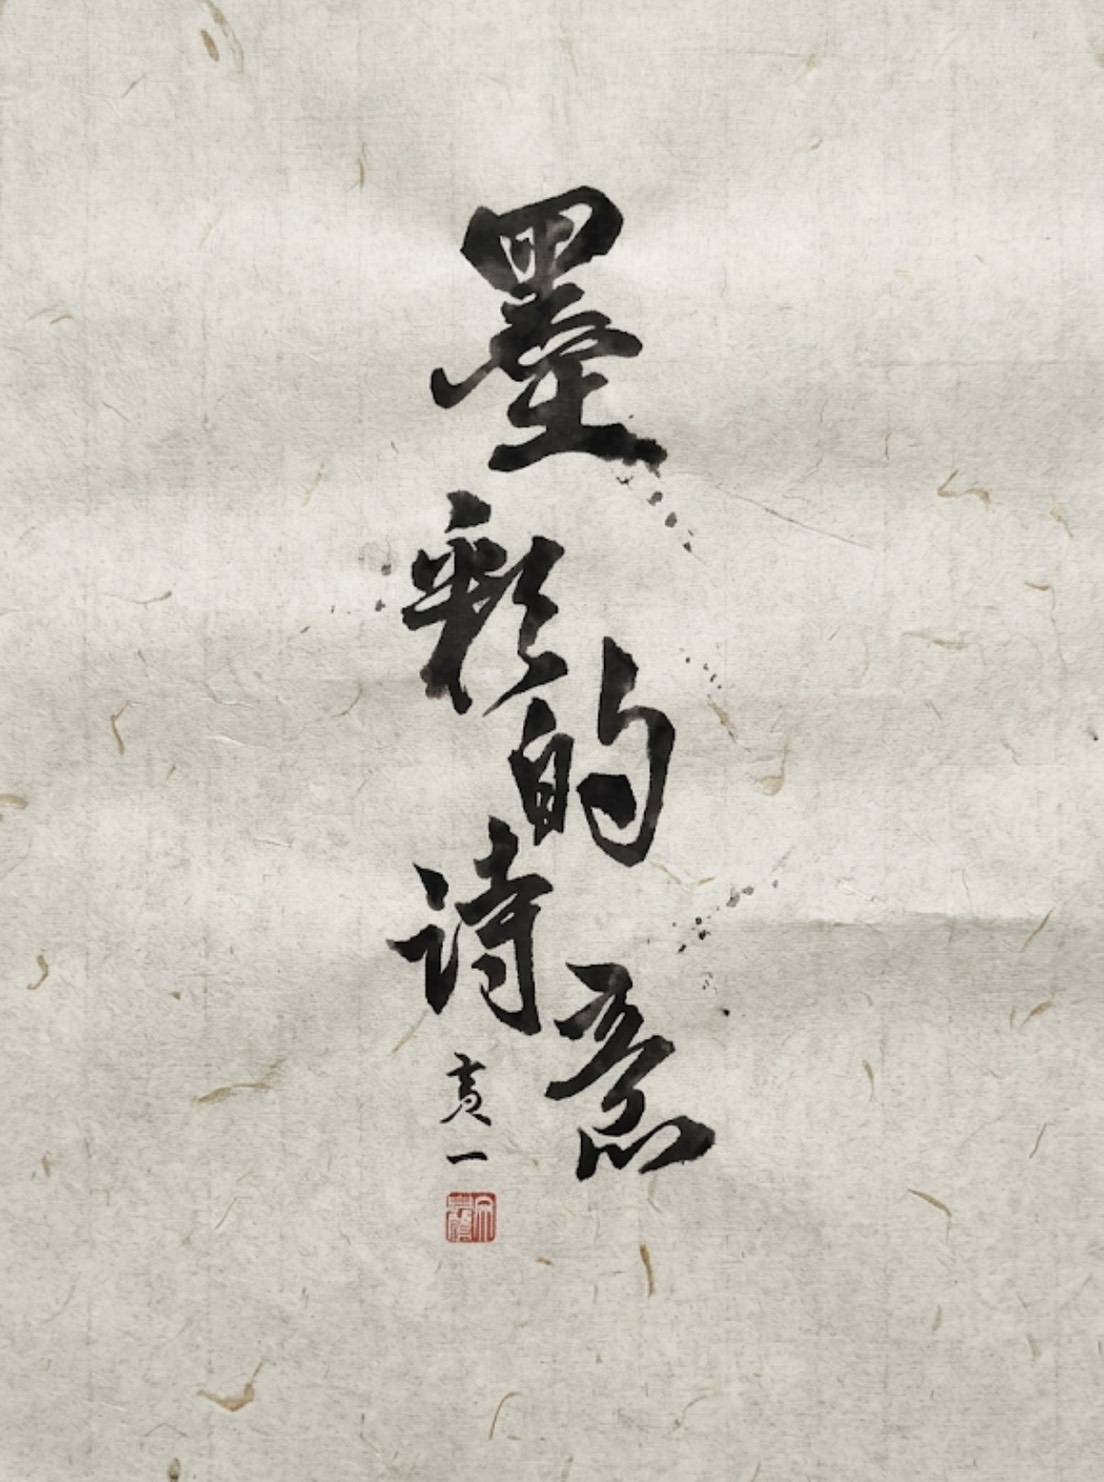 墨彩的诗意
一